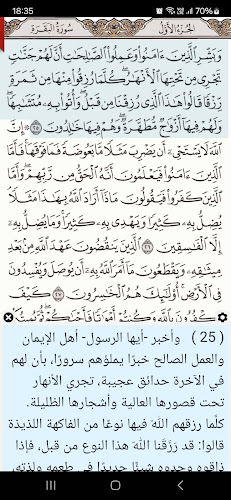 18:35 70%
الجزء الأول سورة البقرة
وَبَشِّرِ الَّذِينَ ءَامَنُوا وَعَمِلُوا الصَّالِحَاتِ أَنَّ لَهُمْ جَنَّاتٍ
تَجْرِي مِن تَحْتِهَا الْأَنْهَارُ كُلَّمَا رُزِقُوا مِنْهَا مِن ثَمَرَةٍ
رِّزْقًا قَالُوا هَذَا الَّذِي رُزِقْنَا مِن قَبْلُ وَأُتُوا بِهِ مُتَشَابِهًا
وَلَهُمْ فِيهَا أَزْوَاجٌ مُّطَهَّرَةٌ وَهُمْ فِيهَا خَالِدُونَ ٢٥ إِنَّ
اللَّهَ لَا يَسْتَحْيِي أَن يَضْرِبَ مَثَلًا مَّا بَعُوضَةً فَمَا فَوْقَهَا فَأَمَّا
الَّذِينَ ءَامَنُوا فَيَعْلَمُونَ أَنَّهُ الْحَقُّ مِن رَّبِّهِمْ وَأَمَّا
الَّذِينَ كَفَرُوا فَيَقُولُونَ مَاذَا أَرَادَ اللَّهُ بِهَذَا مَثَلًا
يُضِلُّ بِهِ كَثِيرًا وَيَهْدِي بِهِ كَثِيرًا وَمَا يُضِلُّ بِهِ
إِلَّا الْفَاسِقِينَ ٢٦ الَّذِينَ يَنقُضُونَ عَهْدَ اللَّهِ مِن بَعْدِ
مِيثَاقِهِ وَيَقْطَعُونَ مَا أَمَرَ اللَّهُ بِهِ أَن يُوصَلَ وَيُفْسِدُونَ
فِي الْأَرْضِ أُولَئِكَ هُمُ الْخَاسِرُونَ ٢٧ كَيْفَ
تَكْفُرُونَ بِاللَّهِ وَكُنتُمْ أَمْوَاتًا فَأَحْيَاكُمْ ثُمَّ
( 25 ) وأخبر -أيها الرسول- أهل الإيمان
والعمل الصالح خبرًا يملؤهم سرورًا، بأن لهم
في الآخرة حدائق عجيبة، تجري الأنهار
تحت قصورها العالية وأشجارها الظليلة.
كلَّما رزقهم الله فيها نوعًا من الفاكهة اللذيذة
قالوا: قد رَزَقَنا الله هذا النوع من قبل، فإذا
ذاقوه وجدوه شيئًا جديدًا في طعمه ولذته،